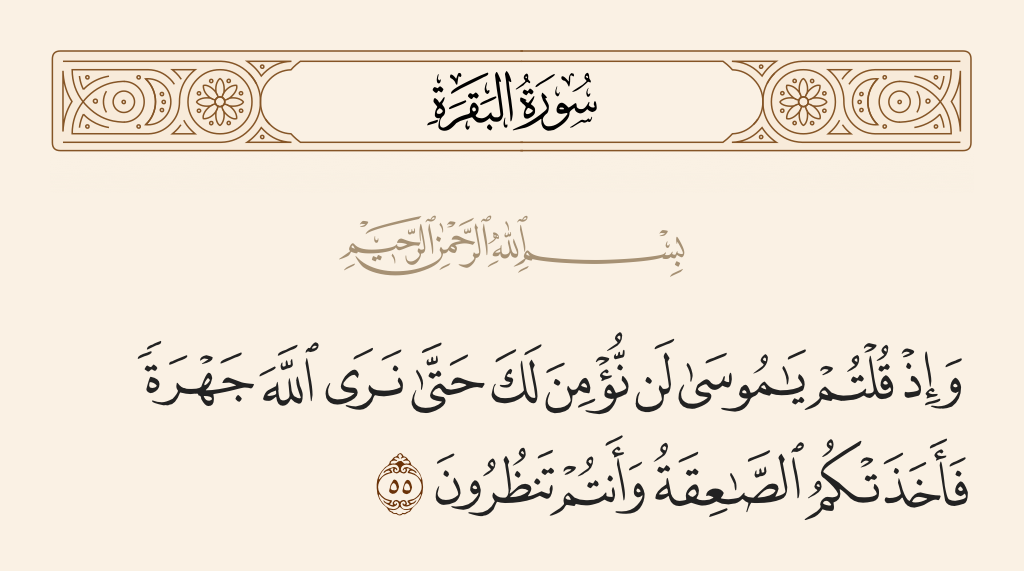 سُورَةُ البَقَرَةِ
بِسْمِ ٱللَّهِ ٱلرَّحْمَٰنِ ٱلرَّحِيمِ
وَإِذْ قُلْتُمْ يَٰمُوسَىٰ لَن نُّؤْمِنَ لَكَ حَتَّىٰ نَرَى ٱللَّهَ جَهْرَةً
فَأَخَذَتْكُمُ ٱلصَّٰعِقَةُ وَأَنتُمْ تَنظُرُونَ ٥٥